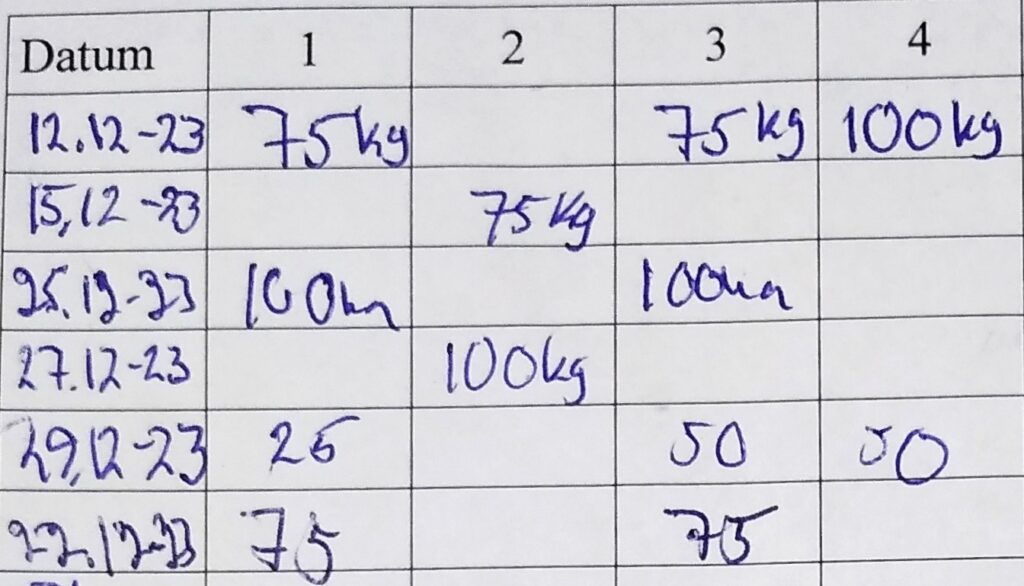 Datum 1 2 3 4
12.12-23 75kg 75kg 100kg
15,12-23 75kg
25.12-23 100kg 100kg
27.12-23 100kg
29,12-23 25 50 50
22.12-23 75 75